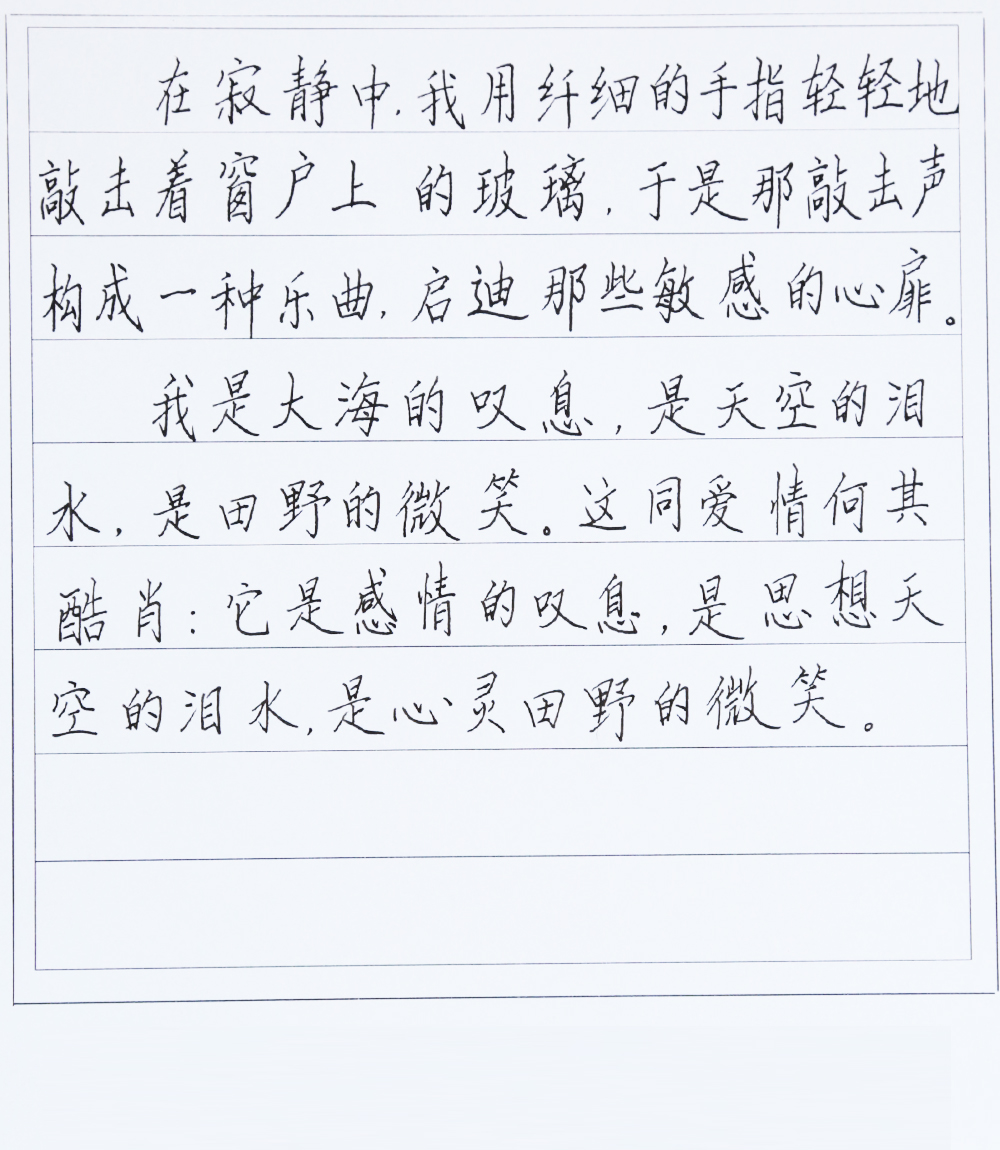 在寂静中,我用纤细的手指轻轻地
敲击着窗户上的玻璃,于是那敲击声
构成一种乐曲,启迪那些敏感的心扉。
我是大海的叹息,是天空的泪
水,是田野的微笑。这同爱情何其
酷肖:它是感情的叹息,是思想天
空的泪水,是心灵田野的微笑。